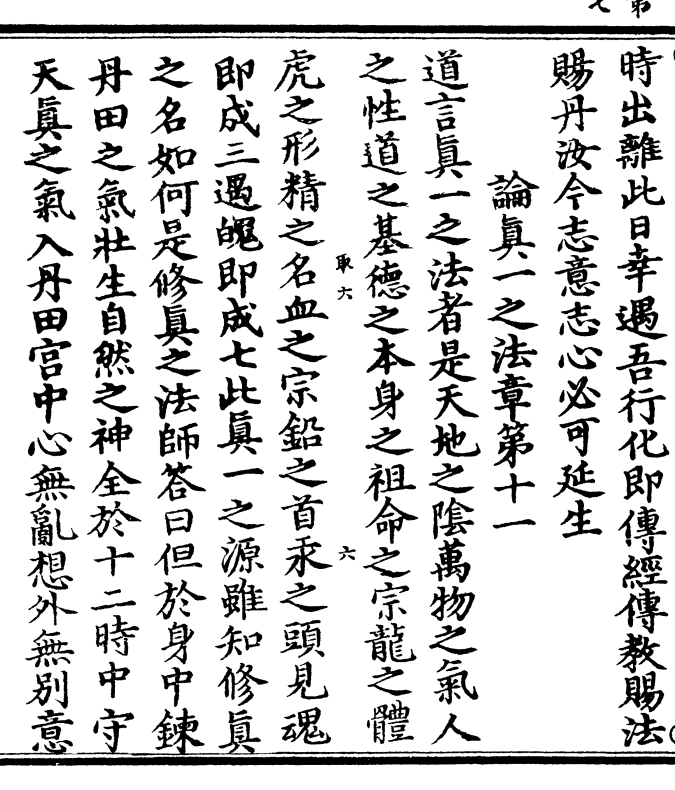 時出離此日幸遇吾行化即傳經傳教賜法
賜丹汝今志意志心必可延生
論眞一之法章第十一
道言眞一之法者是天地之陰萬物之氣人
之性道之基德之本身之祖命之宗龍之體
取六
六
虎之形精之名血之宗鉛之首汞之頭見魂
即成三遇魄即成七此眞一之源雖知修眞
之名如何是修眞之法師答曰但於身中鍊
丹田之氣壯生自然之神全於十二時中守
天眞之氣入丹田宫中心無亂想外無别意